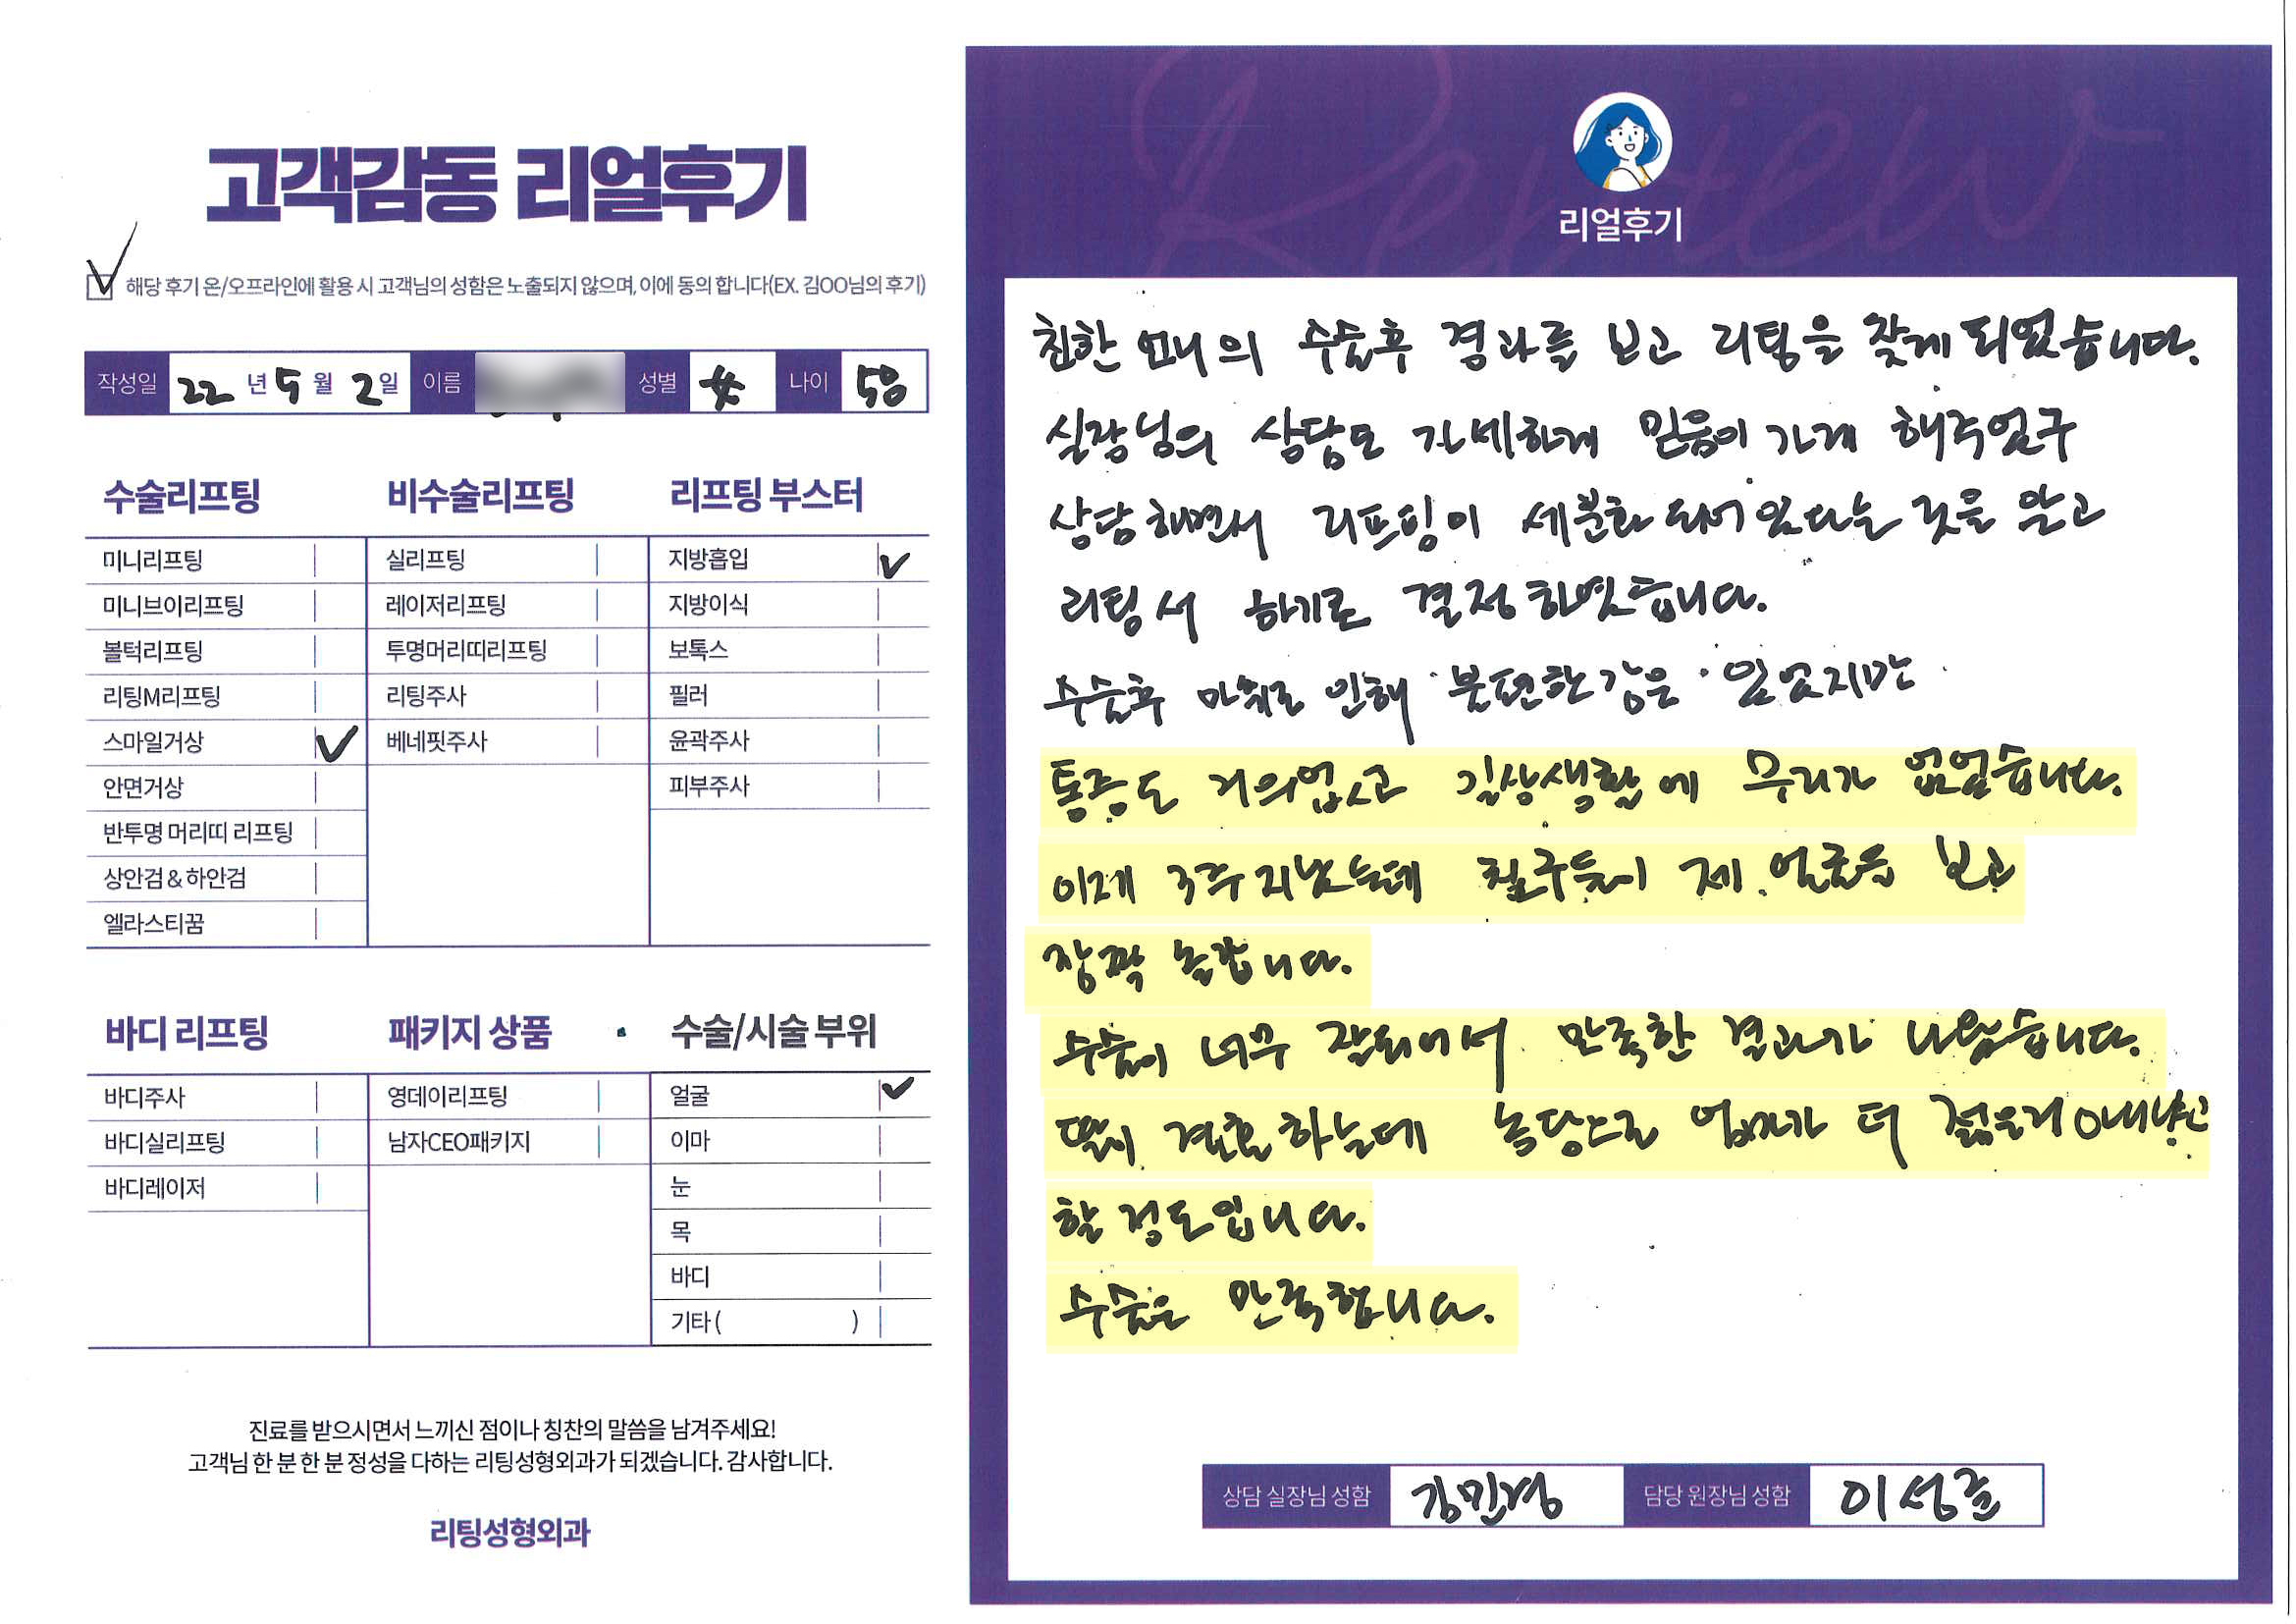 고객감동 리얼후기
해당 후기 온/오프라인에 활용 시 고객님의 성함은 노출되지 않으며, 이에 동의 합니다(EX. 김OO님의 후기)
작성일 22 년 5 월 2 일 이름 성별 女 나이 58
수술리프팅
미니리프팅
미니브이리프팅
볼턱리프팅
리팅M리프팅
스마일거상
안면거상
반투명 머리띠 리프팅
상안검 & 하안검
엘라스티꿈
비수술리프팅
실리프팅
레이저리프팅
투명머리띠리프팅
리팅주사
베네핏주사
리프팅 부스터
지방흡입
지방이식
보톡스
필러
윤곽주사
피부주사
바디 리프팅
바디주사
바디실리프팅
바디레이저
패키지 상품
영데이리프팅
남자CEO패키지
수술/시술 부위
얼굴
이마
눈
목
바디
기타 ( )
진료를 받으시면서 느끼신 점이나 칭찬의 말씀을 남겨주세요!
고객님 한 분 한 분 정성을 다하는 리팅성형외과가 되겠습니다. 감사합니다.
리팅성형외과
Review
리얼후기
친한 언니의 수술후 결과를 보고 리팅을 찾게 되었습니다.
실장님의 상담도 자세하게 믿음이 가게 해주었구
상담하면서 리프팅이 세분화 되어 있다는 것을 알고
리팅서 하기로 결정하였습니다.
수술후 마취로 인해 불편한감은 있었지만
통증도 거의없었고 일상생활에 무리가 없었습니다.
이제 3주 지났는데 친구들이 제 얼굴을 보고
깜짝 놀랍니다.
수술이 너무 잘되어서 만족한 결과가 나왔습니다.
딸이 결혼하는데 농담으로 엄마가 더 젊은거 아니냐고
할 정도입니다.
수술은 만족합니다.
상담 실장님 성함 김민경 담당 원장님 성함